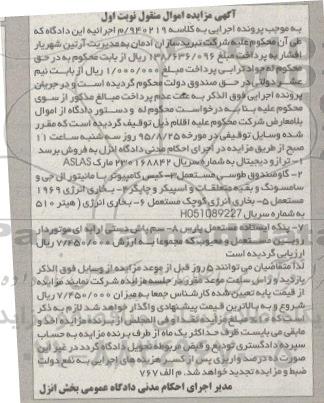 آگهی مزایده اموال منقول نوبت اول
به موجب پرونده اجرایی به کلاسه ۹۴۰۲۱۹/م اجرائیه این دادگاه که
طی آن محکوم علیه شرکت تبرید سازان آدمان به مدیریت آرتین شهریار
افشار به پرداخت مبلغ ۱۳۸/۶۳۶/۰۹۶ ریال از بابت محکوم به در حق
محکوم له جواد ترابی و پرداخت مبلغ ۱/۰۰۰/۰۰۰ ریال از بابت نیم
عشر دولتی در حق صندوق دولت محکوم گردیده است و در جریان
پرونده اجرایی فوق الذکر به علت عدم پرداخت مبالغ مذکور از سوی
محکوم علیه بنا به درخواست محکوم له و دستور دادگاه از اموال
بلامعارض شرکت محکوم علیه اقلام ذیل توقیف گردیده است که مقرر
شده وسایل توقیفی در مورخه ۹۵/۸/۲۵ روز سه شنبه ساعت ۱۱
صبح از طریق مزایده در اجرای احکام مدنی دادگاه انزل به فروش برسد
۱- ترازو دیجیتال به شماره سریال ۲۳۰۱۶۸۸۴۲ مارک ASLAS
۲- گاوصندوق طوسی مستعمل ۳- کیس کامپیوتر با مانیتور ال جی و
سامسونگ و بقیه متعلقات و اسپیکر و چاپگر ۴- بخاری انرژی ۱۹۶۹
مستعمل ۵- بخاری انرژی کوچک مستعمل ۶- بخاری انرژی (هیتر ۵۱۰
به شماره سریال H051089227
۷- پنکه ایستاده مستعمل پارس ۸- سم پاش دستی ارابه ای موتوردار
روبین مستعمل و معیوب که مجموعا به ارزش ۷/۴۵۰/۰۰۰ ریال
ارزیابی گردیده است
لذا متقاضیان می توانند ۵ روز قبل از موعد مزایده از وسایل فوق الذکر
بازدید و راس ساعت موعد مقرر در جلسه مزایده شرکت نمایند مزایده
از قیمت پایه تعیین شده کارشناس جمعا به میزان ۷/۴۵۰/۰۰۰ ریال
شروع و به بالاترین قیمت پیشنهادی واگذار خواهد شد لازم به ذکر
است که ده درصد مبلغ مزایده نقدا و فی المجلس از برنده مزایده اخذ و
مابقی می بایست ظرف حداکثر یک ماه از طرف برنده مزایده به حساب
سپرده دادگستری تودیع و قبض مربوطه تحویل دادگاه گردد در غیر این
صورت ده درصد واریزی پس از کسر هزینه های اجرایی به نفع دولت
ضبط و مزایده تجدید خواهد شد. م الف ۷۶۷
مدیر اجرای احکام مدنی دادگاه عمومی بخش انزل